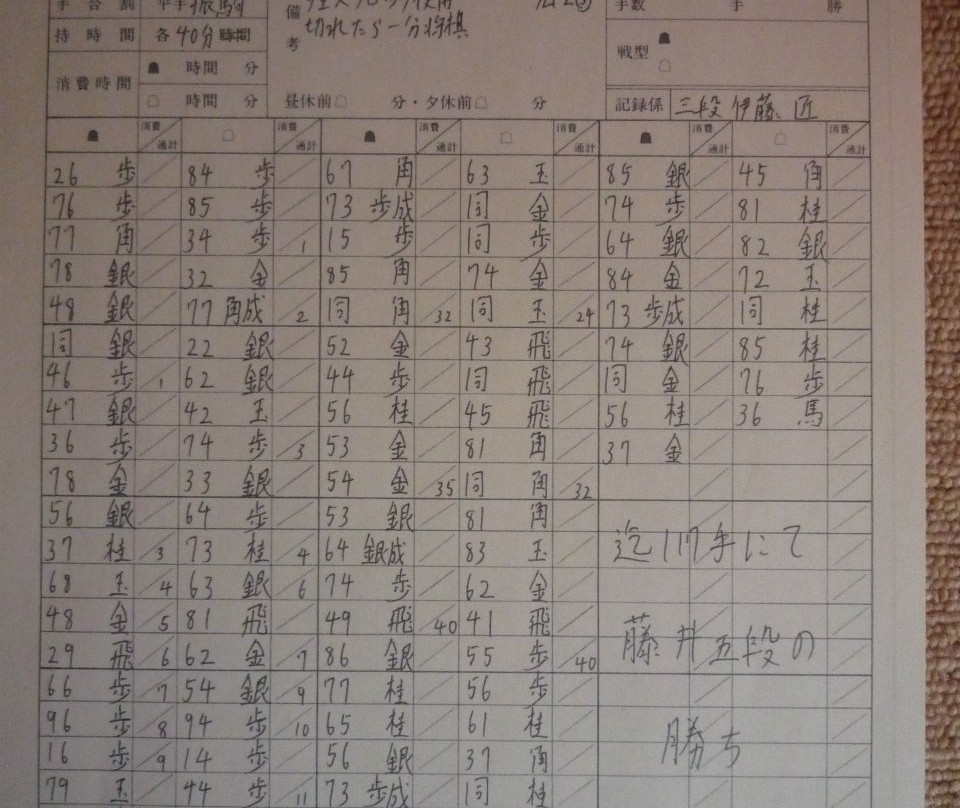 手合割 平手
持時間 各40分
消費時間 時間 分
時間 分
備考
切れたら一分将棋
昼休前 分・夕休前 分
手数 手 勝
戦型
記録係 三段 伊藤 匠
消費 通計 消費 通計 消費 通計 消費 通計 消費 通計 消費 通計
26 歩 84 歩 67 角 63 玉 85 銀 45 角
76 歩 85 歩 73 歩成 同 金 74 歩 81 桂
77 角 34 歩 1 15 歩 同 歩 64 銀 82 銀
78 銀 32 金 85 角 74 金 84 金 72 玉
48 銀 77 角成 2 同 角 32 同 玉 24 73 歩成 同 桂
同 銀 22 銀 52 金 43 飛 74 銀 85 桂
46 歩 1 62 銀 44 歩 同 飛 同 金 76 歩
47 銀 42 玉 56 桂 45 飛 56 桂 36 馬
36 歩 74 歩 3 53 金 81 角 37 金
78 金 33 銀 54 金 35 同 角 32
56 銀 64 歩 53 銀 81 角
37 桂 3 73 桂 4 64 銀成 83 玉
68 玉 4 63 銀 6 74 歩 62 金
48 金 5 81 飛 49 飛 40 41 飛
29 飛 6 62 金 7 86 銀 55 歩 40
66 歩 7 54 銀 9 77 桂 56 歩
96 歩 8 94 歩 10 65 桂 61 桂
16 歩 9 14 歩 56 銀 37 角
79 玉 44 歩 11 73 歩成 同 桂
迄117手にて
藤井五段の
勝ち